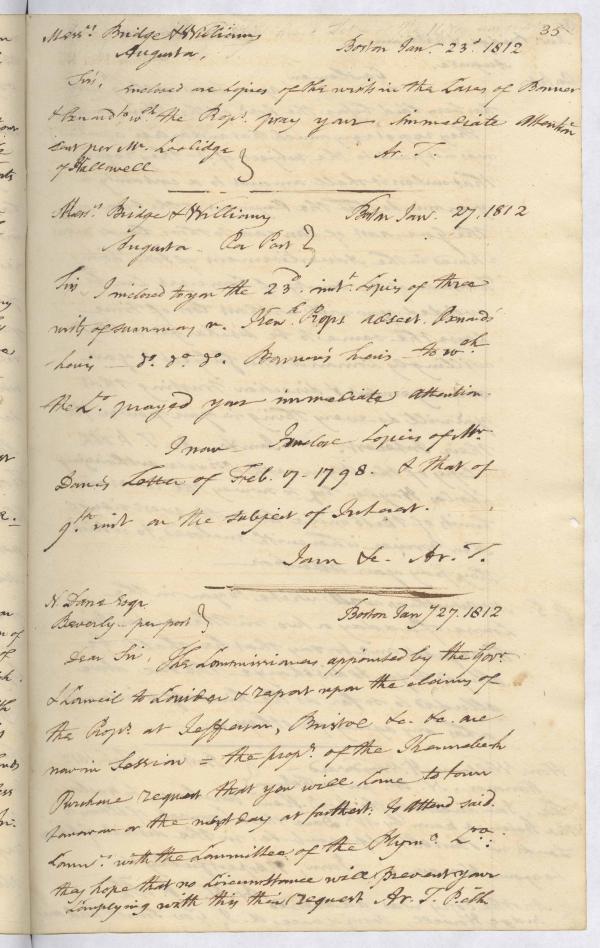 35
Messrs. Bridge & Williams
Augusta, Boston Jan. 23d. 1812
Sirs, enclosed are Copies of the writs in the Cases of Bonner
& to wch. the Props. pray your immediate attention
sent per Mr. Coolidge } Ar. T.
of Hallowell
Messrs. Bridge & Williams Boston Jan. 27. 1812
Augusta Per Post }
Sirs I inclosed to you the 23d. inst. Copies of three
writs of summons v. Kenk. Props
heirs – do. do. do. heirs – to wch.
the Lo. prayed your immediate attention.
I now Inclose Copies of Mr.
Danes Letter of Feb. 17 - 1798. & that of
9th. inst on the subject of Interest.
I am &c. Ar. T.
N. Dane Esqr
Beverly – per post } Boston Jany 27. 1812
Dear Sir, The Commissioners appointed by the Govr.
& Council to Consider & report upon the claims of
the Props. at Jefferson, Bristol &c. &c. are
now in Session = the props. of the Kennebeck
Purchase request that you will come to town
tomorow or the next day at farthest; to Attend said
Comrs. with the Committee of the Plymo.
they hope that no Circumstance will prevent your
Complying with this their request Ar. T. P. Clk